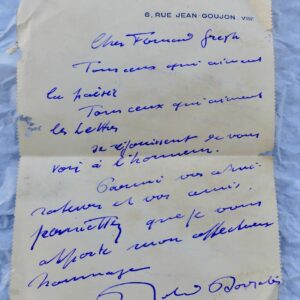 6, RUE JEAN-GOUJON. VIIIe
Cher Fernand Gregh
Tous ceux qui aiment
la poésie
Tous ceux qui aiment
les lettres
se réjouissent de vous
voir à l'honneur.
Parmi vos admi-
rateurs et vos amis.
permettez que je vous
apporte mon affectueux
hommage